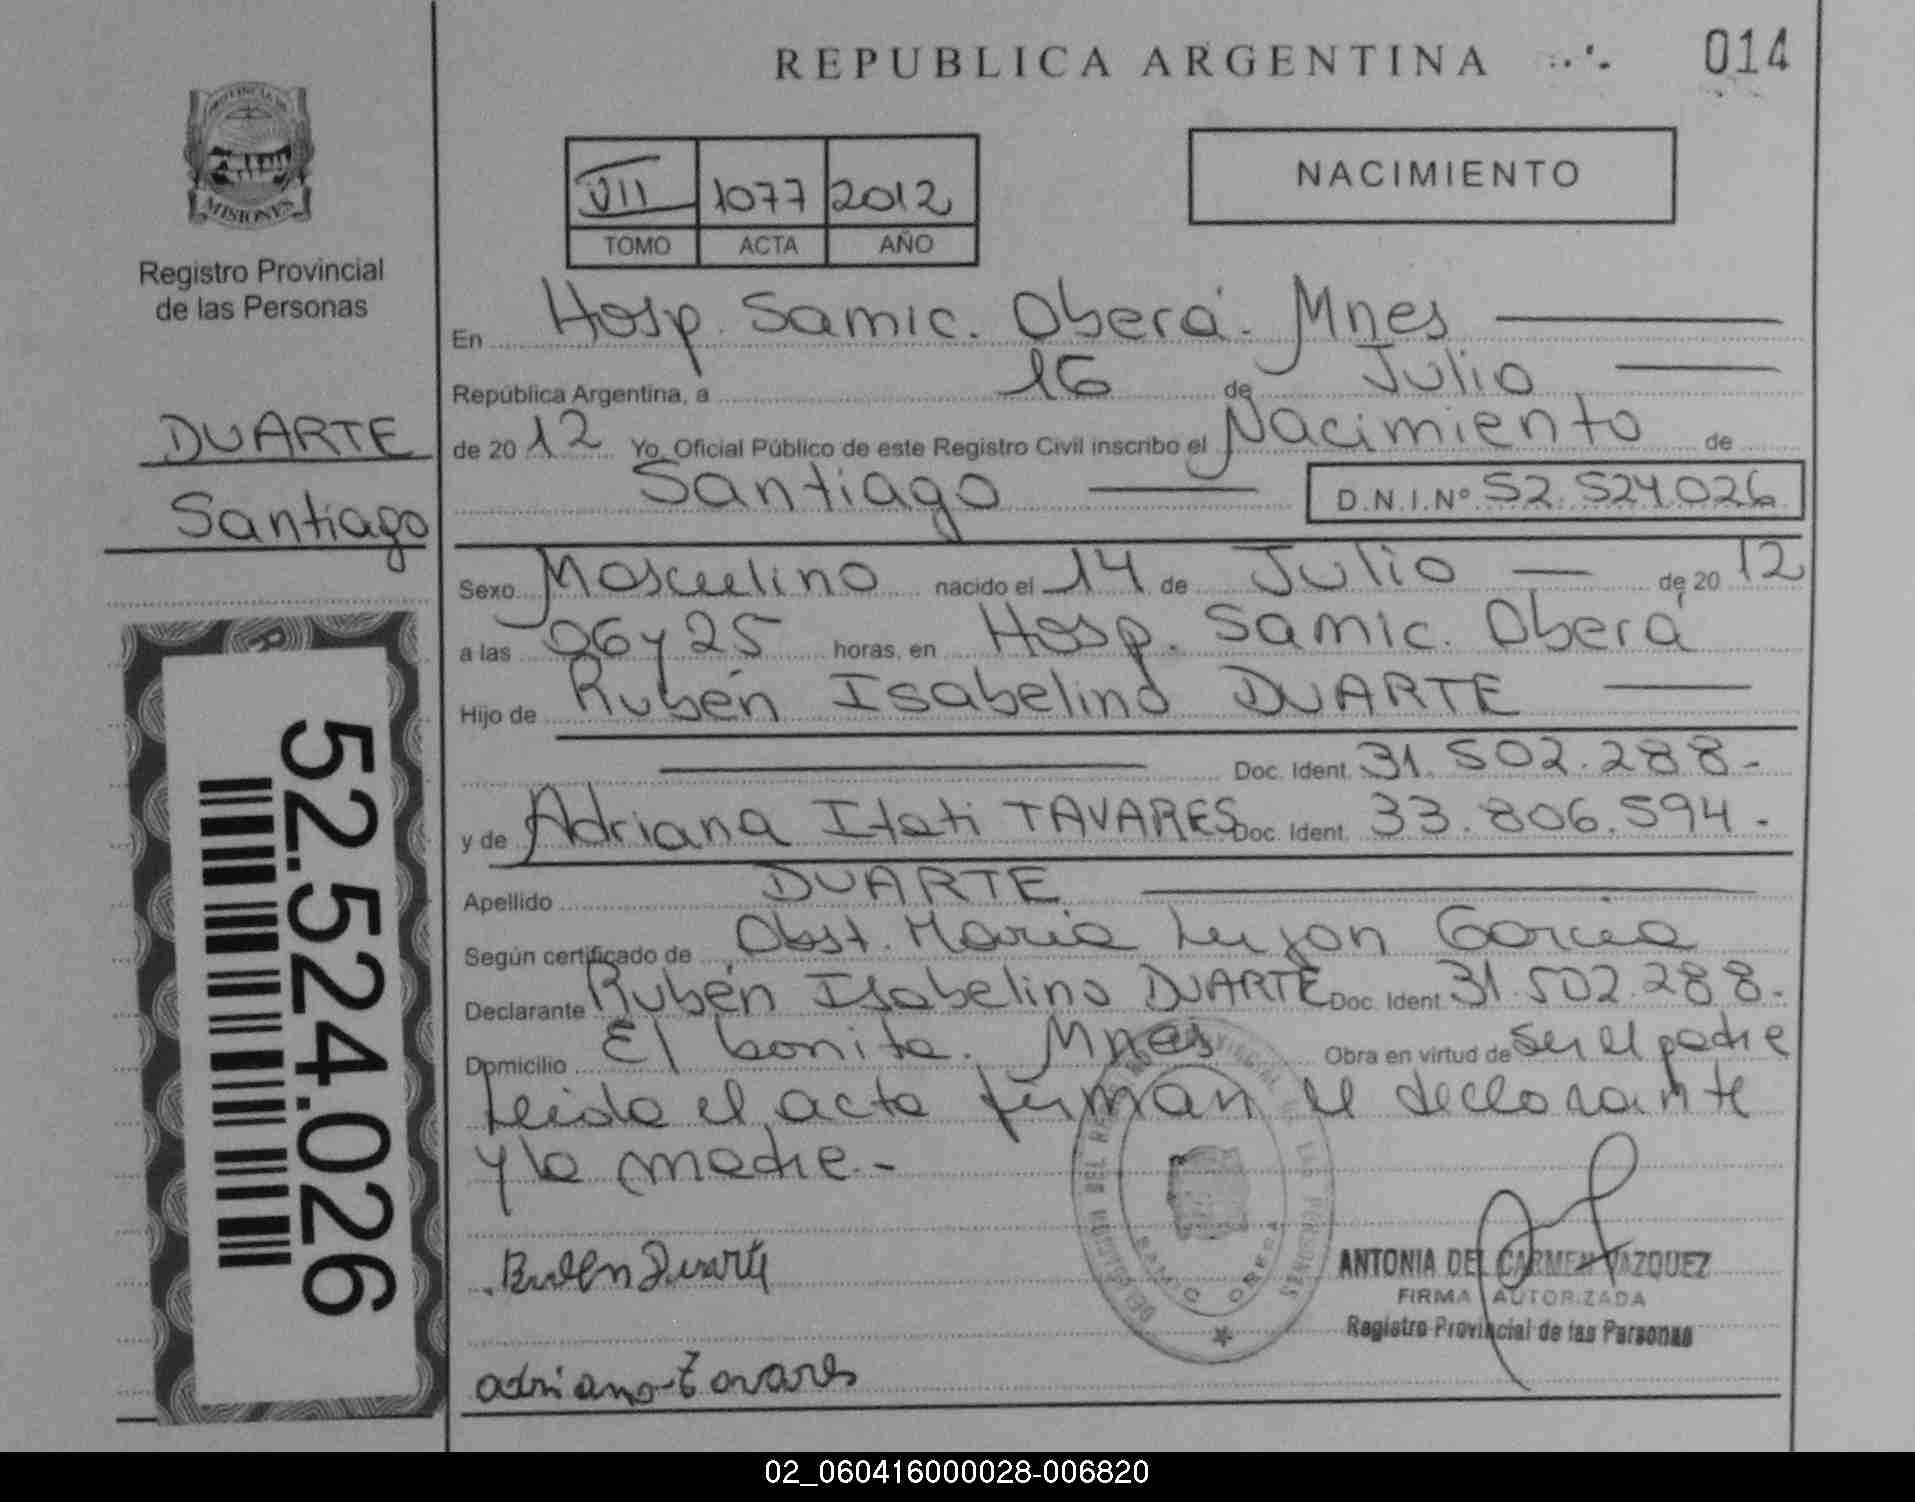 REPUBLICA ARGENTINA
014
PROVINCIA DE
MISIONES
Registro Provincial
de las Personas
DUARTE
Santiago
52.524.026
VII 1077 2012
TOMO ACTA AÑO
NACIMIENTO
En Hosp. Samic. Oberá. Mnes
República Argentina, a 16 de Julio
de 2012 Yo, Oficial Público de este Registro Civil inscribo el Nacimiento de
Santiago D.N.I.Nº 52.524.026
Sexo Masculino nacido el 14 de Julio de 2012
a las 06 y 25 horas, en Hosp. Samic. Oberá
Hijo de Rubén Isabelino DUARTE
Doc. Ident. 31.502.288.-
y de Adriana Itati TAVARES Doc. Ident. 33.806.594.-
Apellido DUARTE
Según certificado de Obst. Maria Lujan Garcia
Declarante Rubén Isabelino DUARTE Doc. Ident. 31.502.288.-
Domicilio El bonito. Mnes Obra en virtud de ser el padre
Leida el acta firman el declarante
y la madre.-
Ruben Duarte
adriana Tavares
DEL REGISTRO PROVINCIAL DE LAS PERSONAS
OBERA
ANTONIA DEL CARMEN VAZQUEZ
FIRMA AUTORIZADA
Registro Provincial de las Personas
02_060416000028-006820